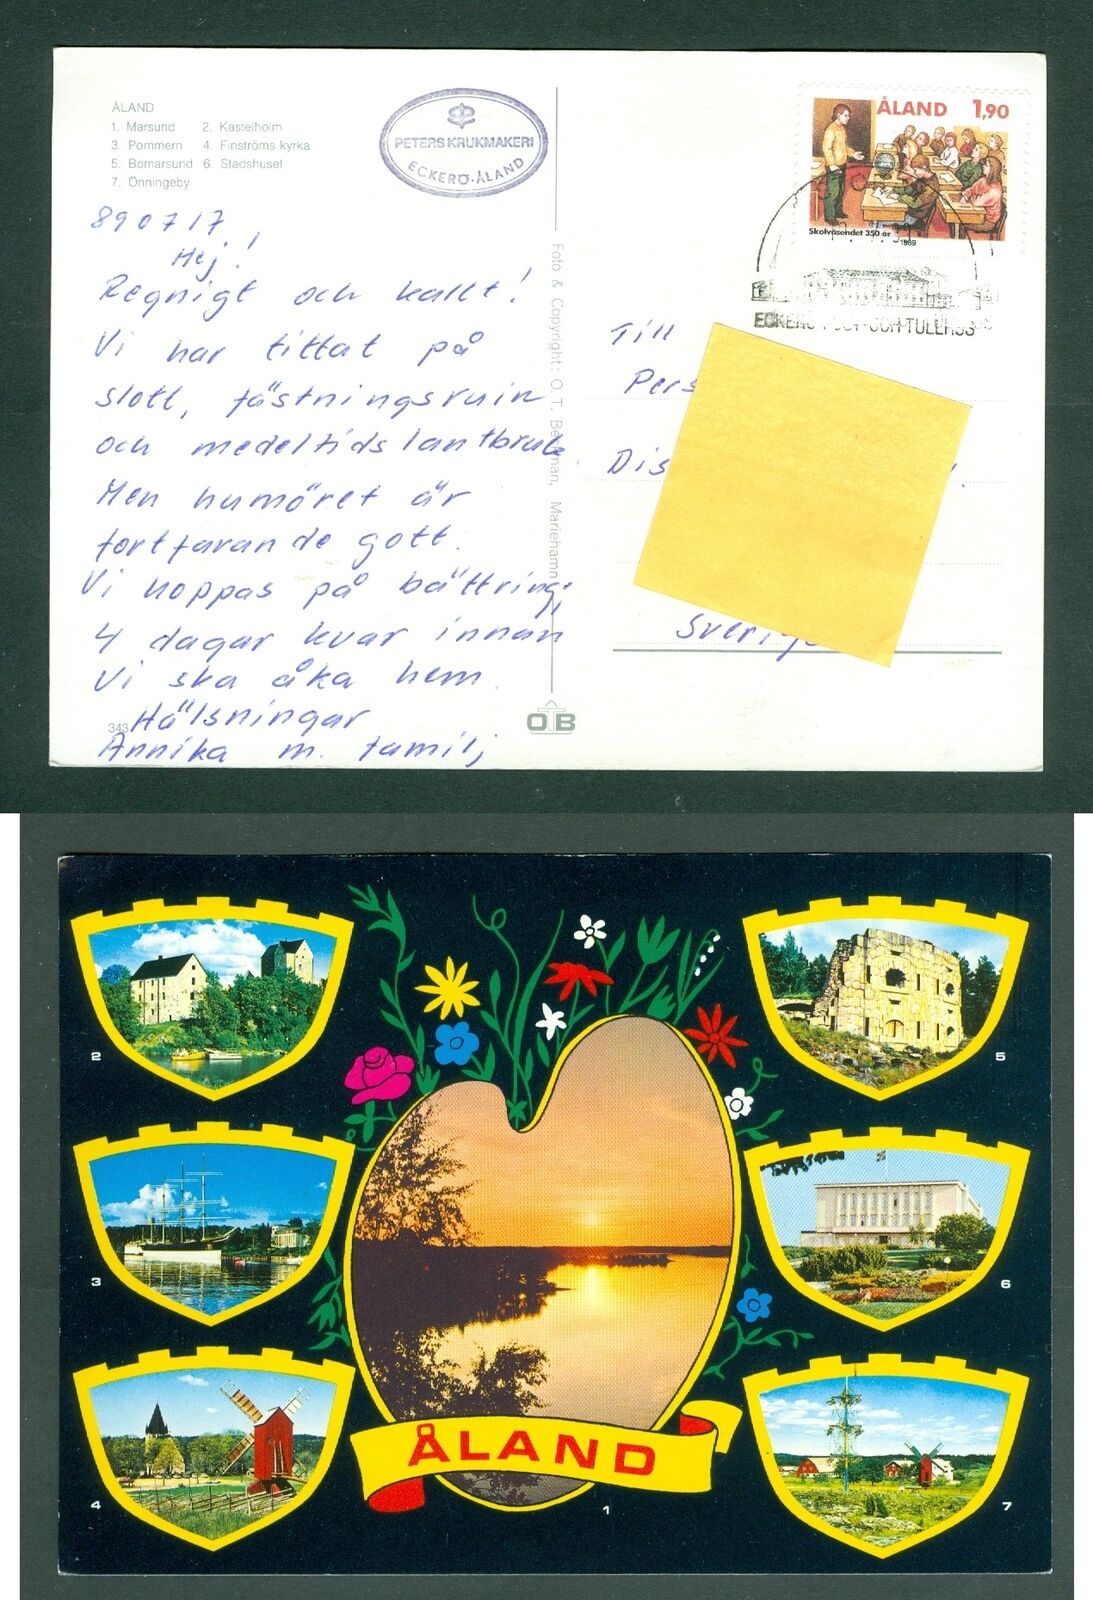 ÅLAND
1. Marsund 2. Kastelholm
3. Pommern 4 Finströms kyrka
5. Bomarsund 6. Stadshuset
7. Önningeby
PETERS KRUKMAKERI
ECKERÖ-ÅLAND
ÅLAND 1,90
Skolväsendet 350 år
1989
ECKERÖ POST-OCH TULLHUS
890717
Hej!
Regnigt och kallt!
Vi har tittat på
slott, fästningsruin
och medeltidslantbruk.
Men humöret är
fortfarande gott.
Vi hoppas på bättring;
4 dagar kvar innan
Vi ska åka hem.
Hälsningar
Annika m. familj
343
Foto & Copyright: O. T. Bergman, Mariehamn
OTB
Till
Pers
Dis
Sverige
2
5
3
6
4
7
ÅLAND
1